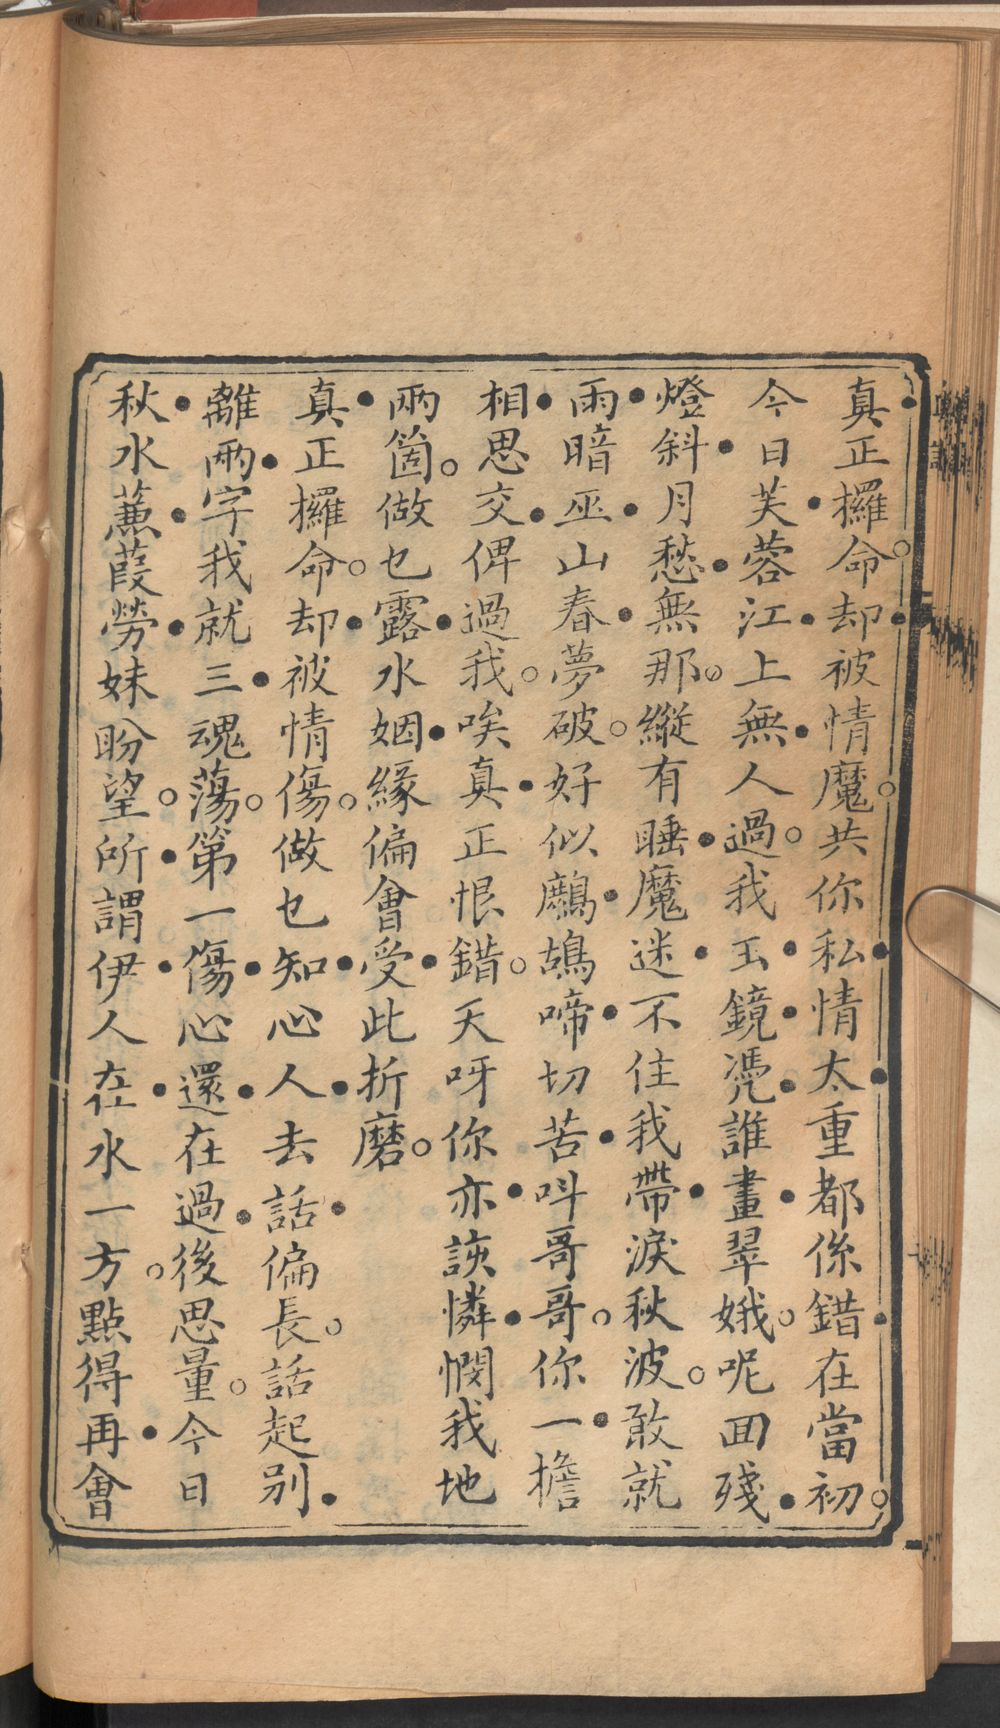 真正攞命却被情魔共你私情太重都係錯在當初
今日芙蓉江上無人過我玉鏡憑誰畫翠娥呢囬殘
燈斜月愁無那縱有睡魔迷不住我帶淚秋波敢就
雨暗巫山春夢破好似鷓鴣啼切苦呌哥哥你一擔
相思交俾過我唉真正恨錯天呀你亦該憐憫我地
兩箇做乜露水姻緣偏會受此折磨
真正攞命却被情傷做乜知心人去話偏長話起别
離兩字我就三魂蕩第一傷心還在過後思量今日
秋水蒹葭勞妹盼望所謂伊人在水一方點得再會